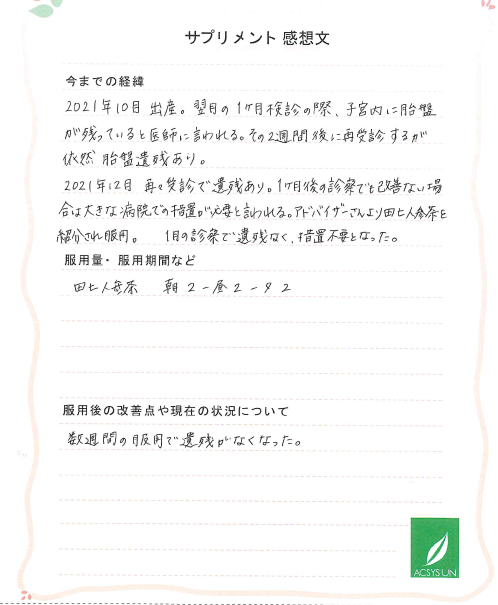 サプリメント 感想文
今までの経緯
2021年10月 出産。翌月の1ヶ月検診の際、子宮内に胎盤
が残っていると医師に言われる。その2週間後に再受診するが
依然 胎盤遺残あり。
2021年12月 再々受診で遺残あり。1ヶ月後の診察でも改善ない場
合は大きな病院での措置が必要と言われる。アドバイザーさんより田七人参茶を
紹介され服用。 1月の診察で遺残なく、措置不要となった。
服用量・服用期間など
田七人参茶 朝2-昼2-夕2
服用後の改善点や現在の状況について
数週間の服用で遺残がなくなった。
ACSYSUN